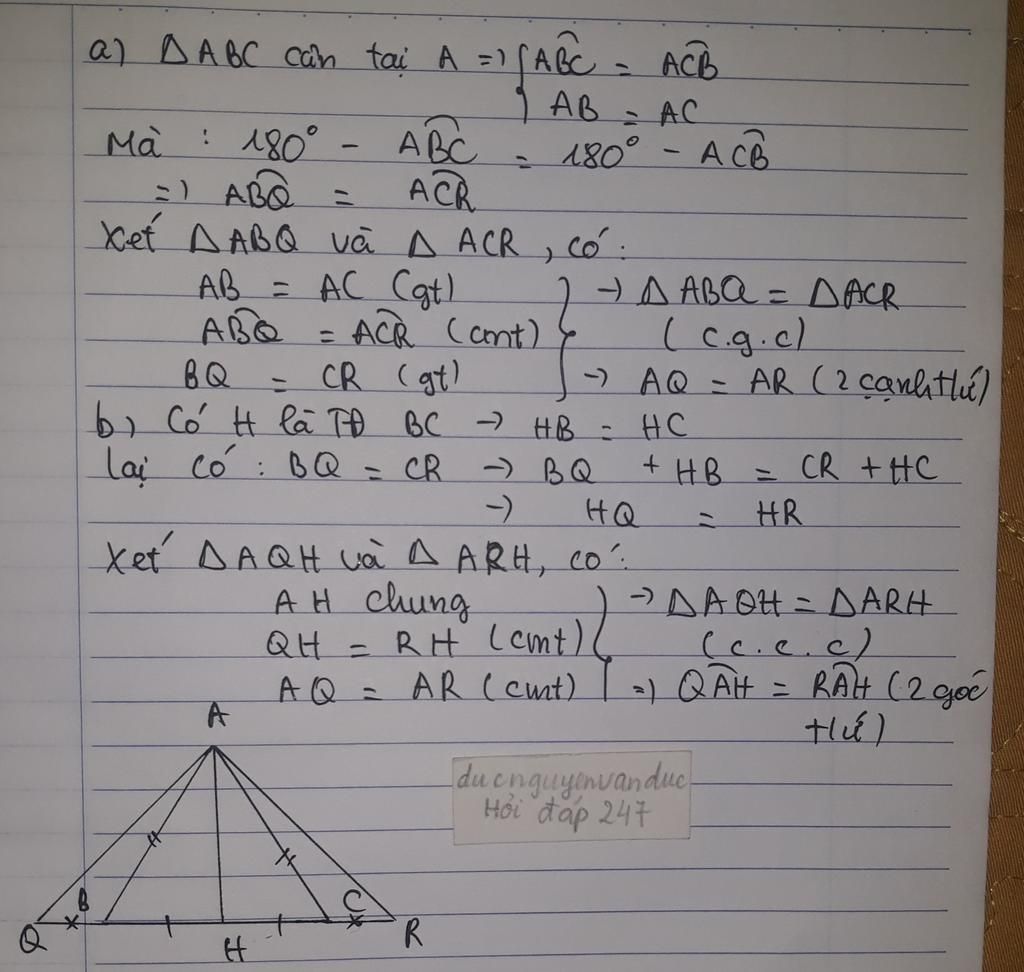 a) ΔABC cân tại A => { ABC^ = ACB^
AB = AC
Mà : 180° - ABC^ = 180° - ACB^
=> ABQ^ = ACR^
Xét ΔABQ và Δ ACR, có:
AB = AC (gt) } → Δ ABQ = ΔACR
ABQ^ = ACR^ (cmt) (c.g.c)
BQ = CR (gt) → AQ = AR (2 cạnh tứ)
b) Có H là TĐ BC → HB = HC
lại có : BQ = CR → BQ + HB = CR + HC
→ HQ = HR
Xét ΔAQH và Δ ARH, có:
AH chung } → ΔAQH = ΔARH
QH = RH (cmt) (c.c.c)
AQ = AR (cmt) => QAH^ = RAH^ (2 góc
tứ)
A
ducnguyenvanduc
Hỏi đáp 247
B C
Q H R